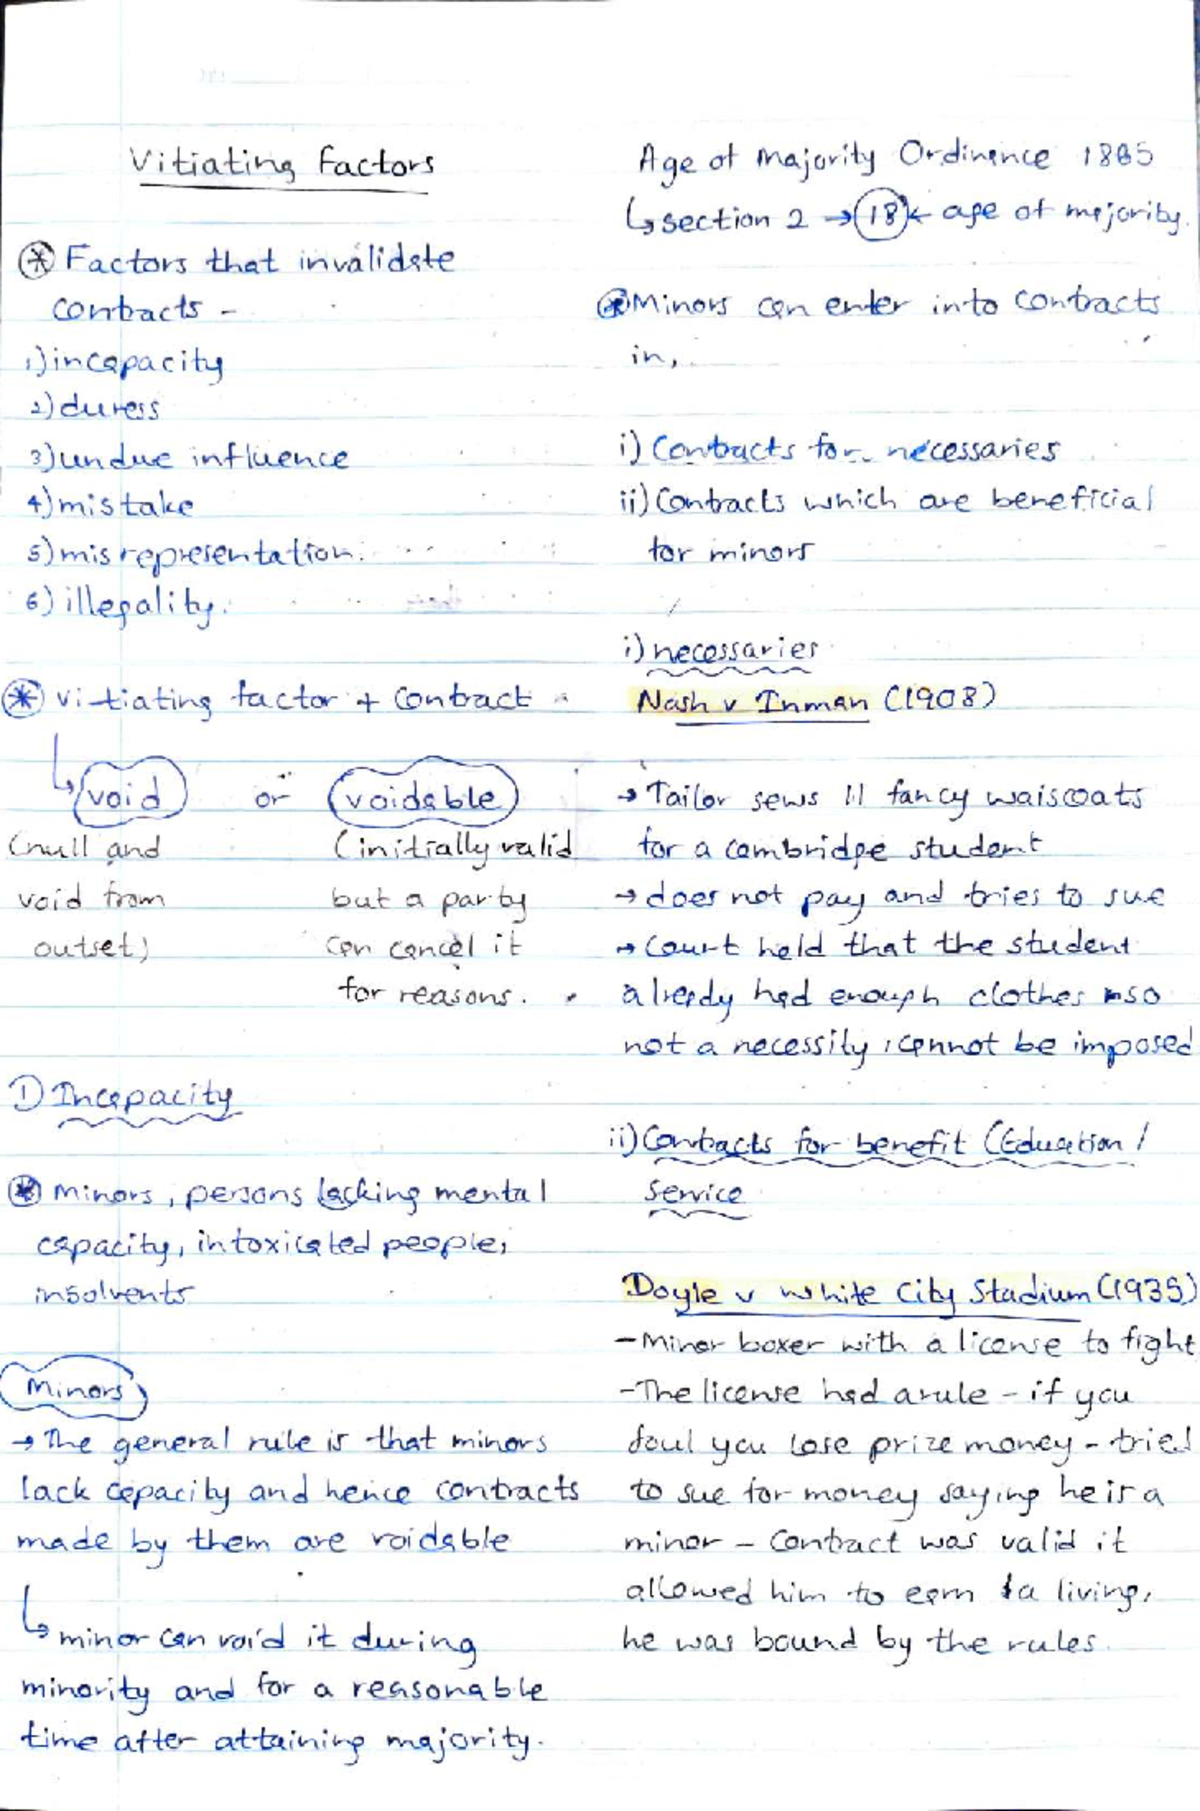 Vitiating Factors
⊛ Factors that invalidate
contracts -
1) incapacity
2) duress
3) undue influence
4) mistake
5) misrepresentation.
6) illegality.
⊛ vitiating factor + contract -
↳ void or voidable
(null and
void from
outset)
(initially valid
but a party
can cancel it
for reasons.
1) Incapacity
⊛ minors, persons lacking mental
capacity, intoxicated people,
insolvents
Minors
→ The general rule is that minors
lack capacity and hence contracts
made by them are voidable
↳ minor can void it during
minority and for a reasonable
time after attaining majority.
Age of Majority Ordinence 1865
↳ section 2 → 18 ← age of majority.
⊛ Minors can enter into contracts
in,
i) Contracts for necessaries
ii) Contracts which are beneficial
for minors
i) necessaries
Nash v Inman (1908)
→ Tailor sews 11 fancy waiscoats
for a cambridge student
→ does not pay and tries to sue
→ Court held that the student
already had enough clothes so
not a necessity, cannot be imposed
ii) Contracts for benefit (Education /
Service
Doyle v White City Stadium (1935)
- Minor boxer with a license to fight
- The license had a rule - if you
foul you lose prize money - tried
to sue for money saying he is a
minor - Contract was valid it
allowed him to earn a living,
he was bound by the rules.